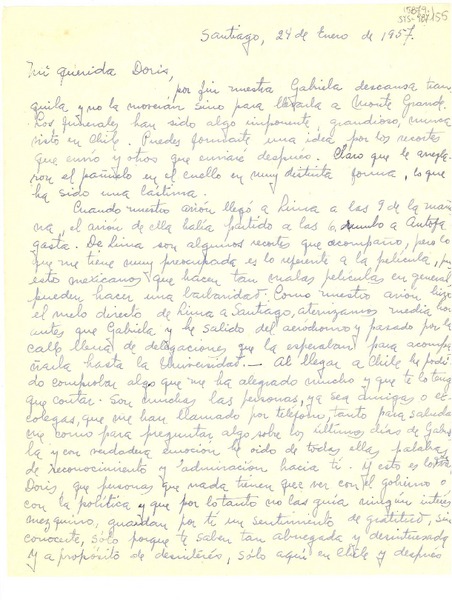 155
Santiago, 24 de Enero de 1957.
Mi querida Doris,
por fin nuestra Gabriela descansa tran
quila y no la moverán sino para llevarla a Monte Grande.
Los funerales han sido algo imponente, grandioso, nunca
visto en Chile. Puedes formarte una idea por los recortes
que envío y otros que enviaré después. Claro que le arregla-
ron el pañuelo en el cuello en muy distinta forma, lo que
ha sido una lástima.
Cuando nuestro avión llegó a Lima a las 9 de la maña
na, el avión de ella había partido a las 6, rumbo a Antofa
gasta. De Lima son algunos recortes que acompaño, pero lo
que me tiene muy preocupada es lo referente a la película, pues
estos mexicanos que hacen tan malas películas en general
pueden hacer una barbaridad. Como nuestro avión hizo
el vuelo directo de Lima a Santiago, aterrizamos media hora
antes que Gabriela y he salido del aeródromo y pasado por la
calle llena de delegaciones que la esperaban para acompa
ñarla hasta la Universidad. — Al llegar a Chile he podi
do comprobar algo que me ha alegrado mucho y que te tengo
que contar. Son muchas las personas, ya sea amigas o ex-
colegas, que me han llamado por teléfono, tanto para saludar
me como para preguntar algo sobre los últimos días de Gabrie
la y con verdadera emoción he oido de todas ellas palabras
de reconocimiento y admiración hacia ti. Y esto es lo
Doris, que personas que nada tienen que ver con el gobierno o
con la política y que por lo tanto no las guía ningún interés
mezquino, guardan por ti un sentimiento de gratitud, sin
conocerte, sólo porque te saben tan abnegada y desinteresada
y a propósito de desinterés, sólo aquí en Chile y después